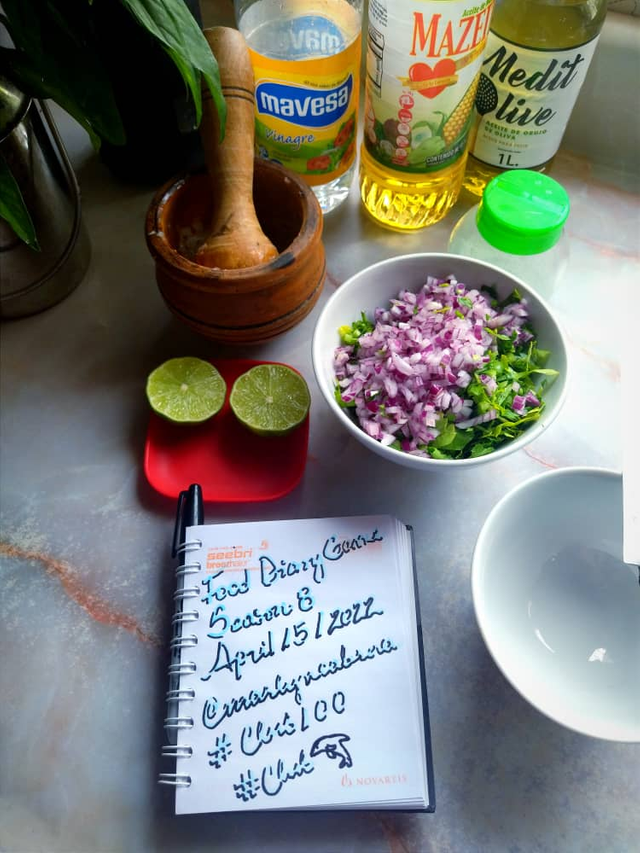 mavesa
Vinagre
Aceite de
MAZE
CONTENIDO
Medit
Olive
ACEITE DE ORUJO
DE OLIVA
1L.
seebri
breezhaler
Food Diary Game
Season 8
April /5/2022
@marlyncabrera
# Club100
#Club
NOVARTIS